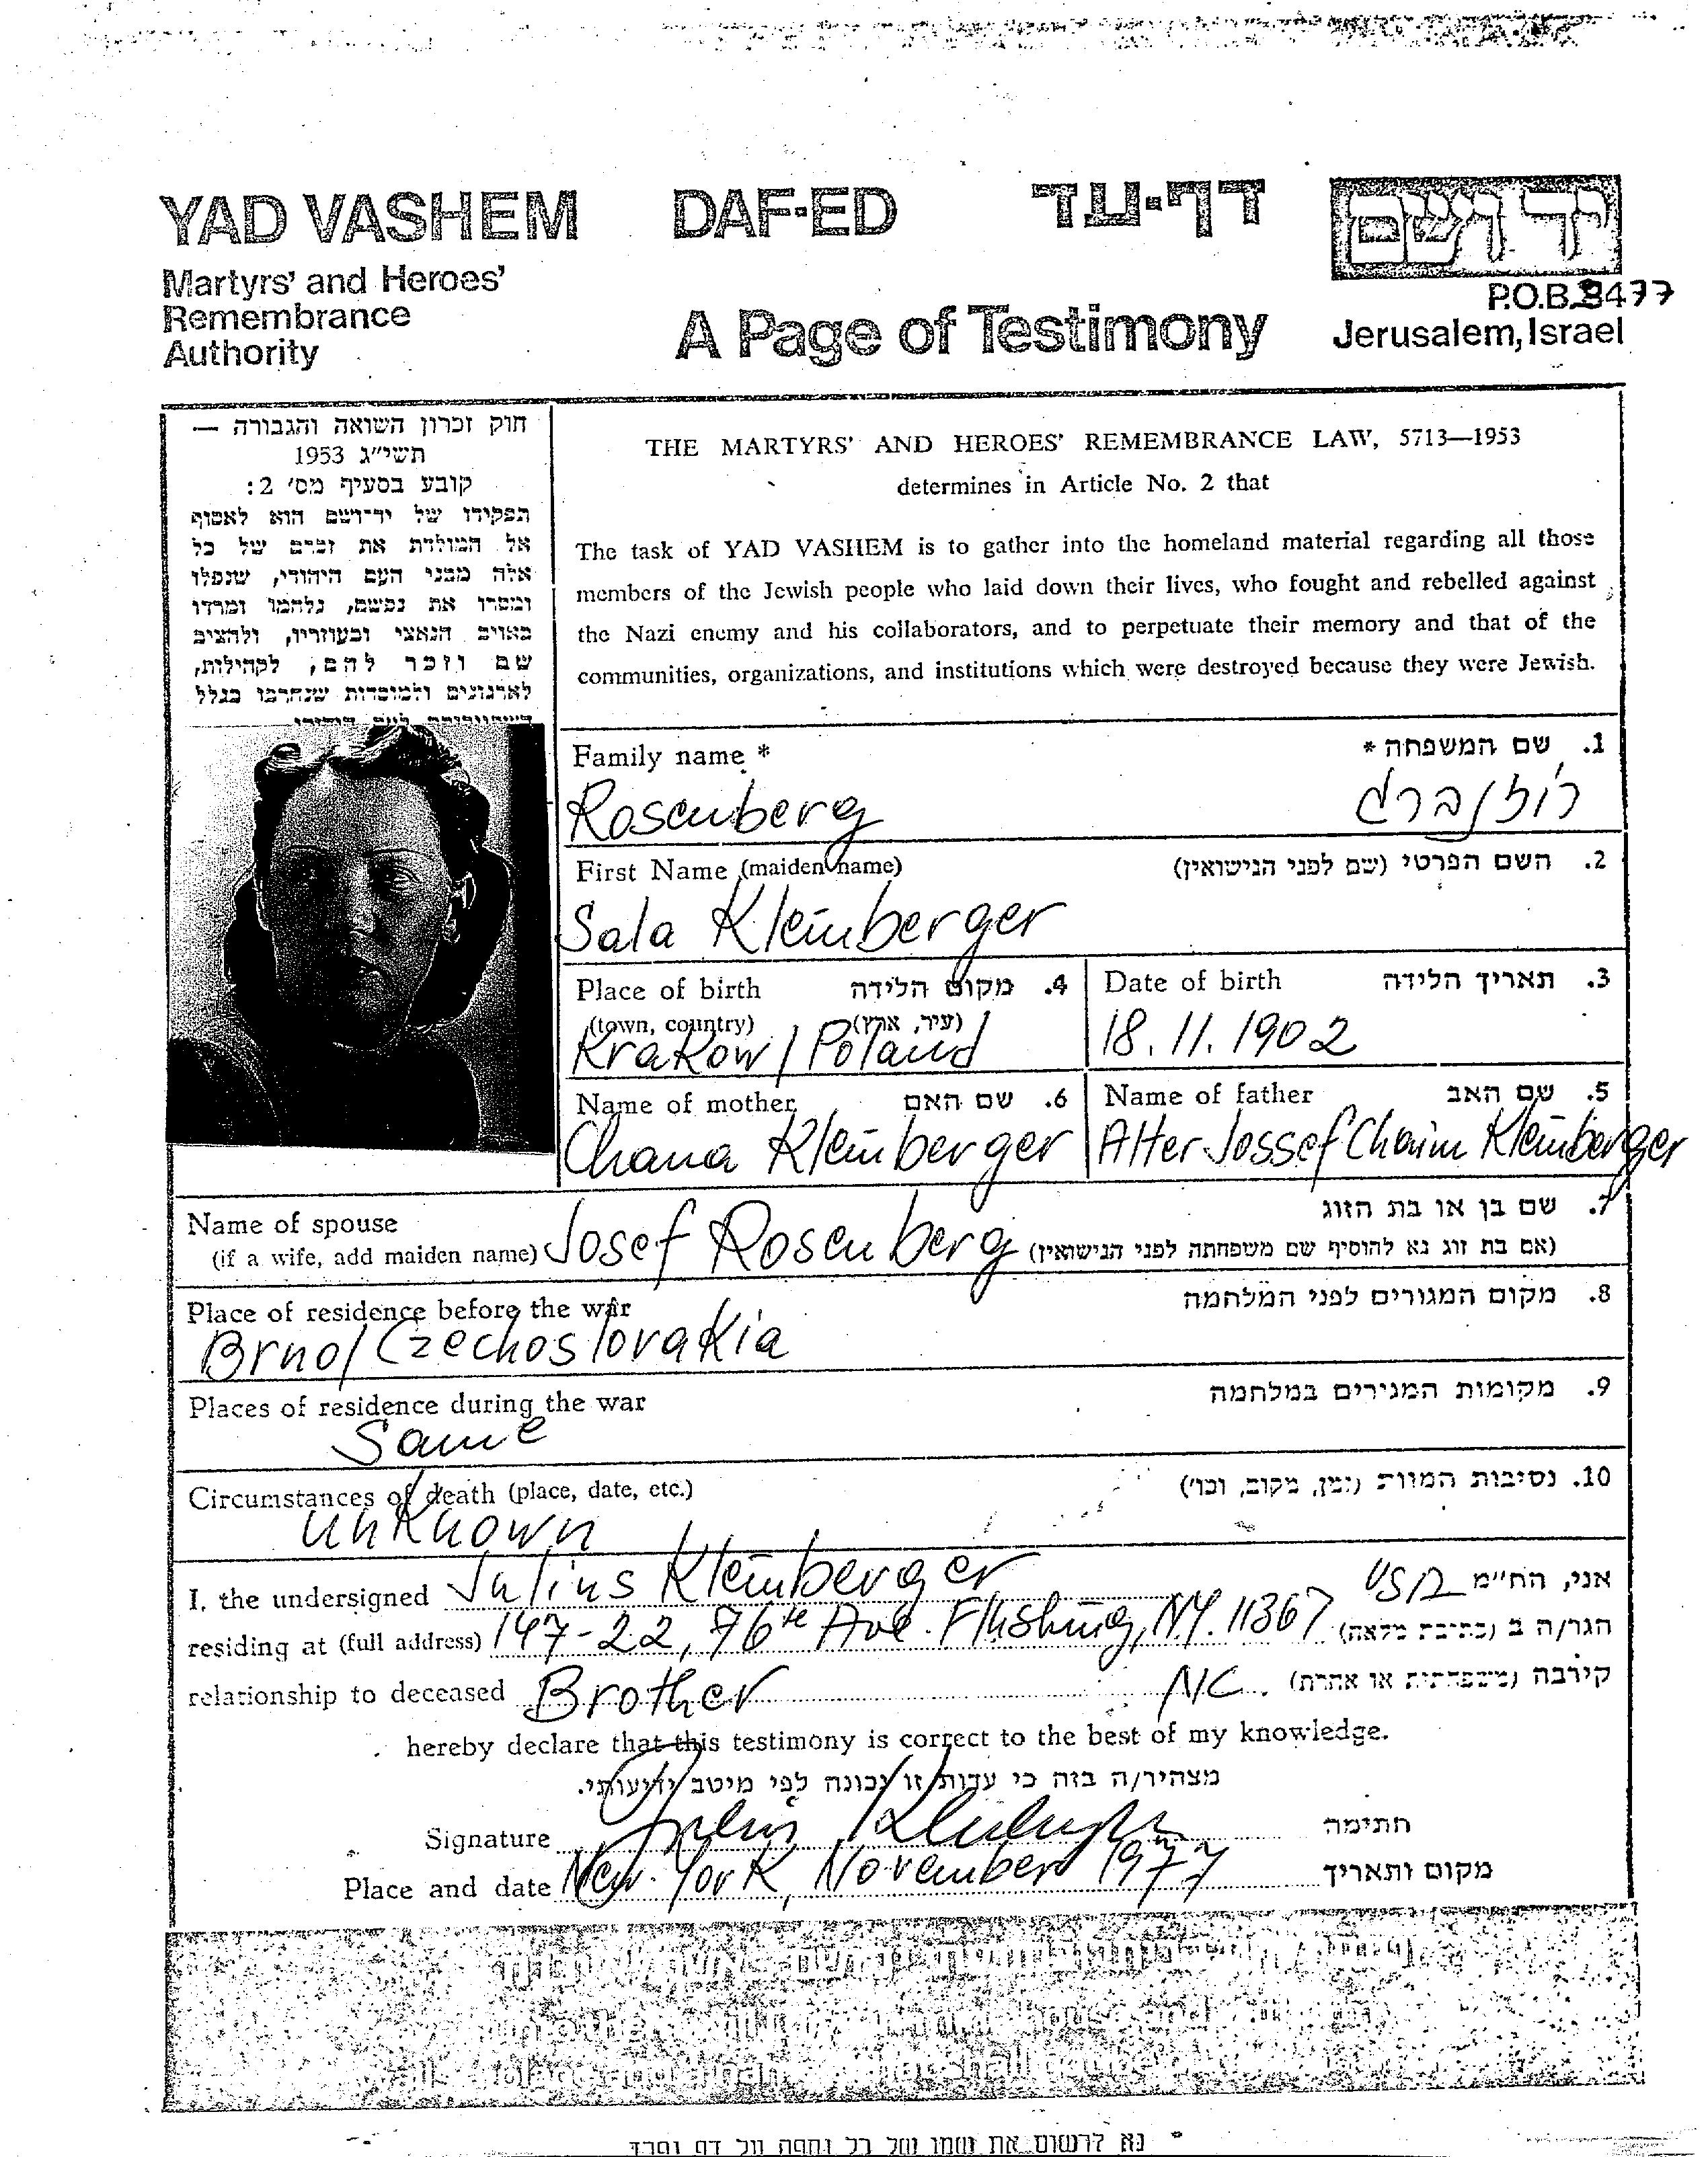 YAD VASHEM DAF-ED דף-עד יד ושם
Martyrs' and Heroes'
Remembrance
Authority
A Page of Testimony
P.O.B. 3477
Jerusalem, Israel
חוק זכרון השואה והגבורה —
תשי"ג 1953
קובע בסעיף מס' 2:
תפקידו של יד-ושם הוא לאסוף
אל המולדת את זכרם של כל
אלה מבני העם היהודי, שנפלו
ומסרו את נפשם, נלחמו ומרדו
באויב הנאצי ובעוזריו, ולהציב
שם וזכר להם, לקהילות,
לארגונים ולמוסדות שנחרבו בגלל
THE MARTYRS' AND HEROES' REMEMBRANCE LAW, 5713—1953
determines in Article No. 2 that
The task of YAD VASHEM is to gather into the homeland material regarding all those
members of the Jewish people who laid down their lives, who fought and rebelled against
the Nazi enemy and his collaborators, and to perpetuate their memory and that of the
communities, organizations, and institutions which were destroyed because they were Jewish.
Family name * 1. שם המשפחה *
Rosenberg רוזנברג
First Name (maiden name) 2. השם הפרטי (שם לפני הנישואין)
Sala Kleinberger
Place of birth 4. מקום הלידה
(town, country) (עיר, ארץ)
Krakow / Poland
Date of birth 3. תאריך הלידה
18.11.1902
Name of mother 6. שם האם
Chana Kleinberger
Name of father 5. שם האב
Alter Jossef Chaim Kleinberger
Name of spouse 7. שם בן או בת הזוג
(if a wife, add maiden name) Josef Rosenberg (אם בת זוג נא להוסיף שם משפחתה לפני הנישואין)
Place of residence before the war 8. מקום המגורים לפני המלחמה
Brno / Czechoslovakia
Places of residence during the war 9. מקומות המגורים במלחמה
Same
Circumstances of death (place, date, etc.) 10. נסיבות המוות (זמן, מקום, וכו')
unknown
I, the undersigned Julius Kleinberger USA אני, הח"מ
residing at (full address) 147-22, 76th Ave. Flushing, N.Y. 11367 הגר/ה ב (כתובת מלאה)
relationship to deceased Brother N/C. קירבה (משפחתית או אחרת)
hereby declare that this testimony is correct to the best of my knowledge.
מצהיר/ה בזה כי עדות זו נכונה לפי מיטב ידיעותי.
Signature Julius Kleinberger חתימה
Place and date New-York, November 1977 מקום ותאריך
נא לרשום את שמו של כל נספה על דף נפרד